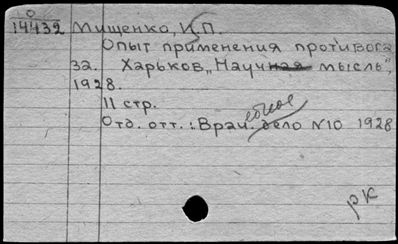 0
14432 Мищенко, И.П.
Опыт применения противога
за. Харьков, „Научная мысль",
1928.
11 стр.
Отд. отт.: Врачебное дело №10 1928
рк